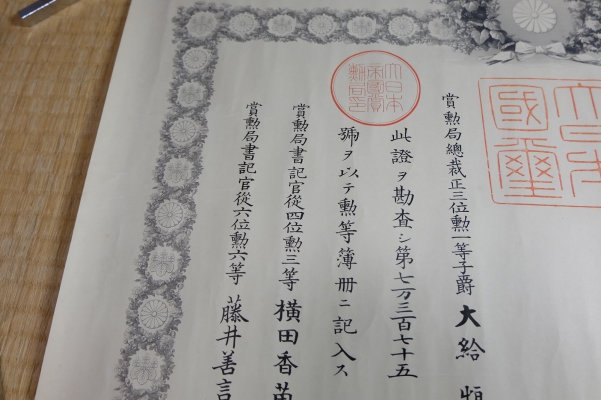 大日本
國璽
賞勳局總裁正三位勳一等子爵 大給
大日本
帝國賞
勳局印
此證ヲ勘査シ第七万三百七十五
號ヲ以テ勳等簿冊ニ記入ス
賞勳局書記官從四位勳三等 横田香苗
賞勳局書記官從六位勳六等 藤井善言